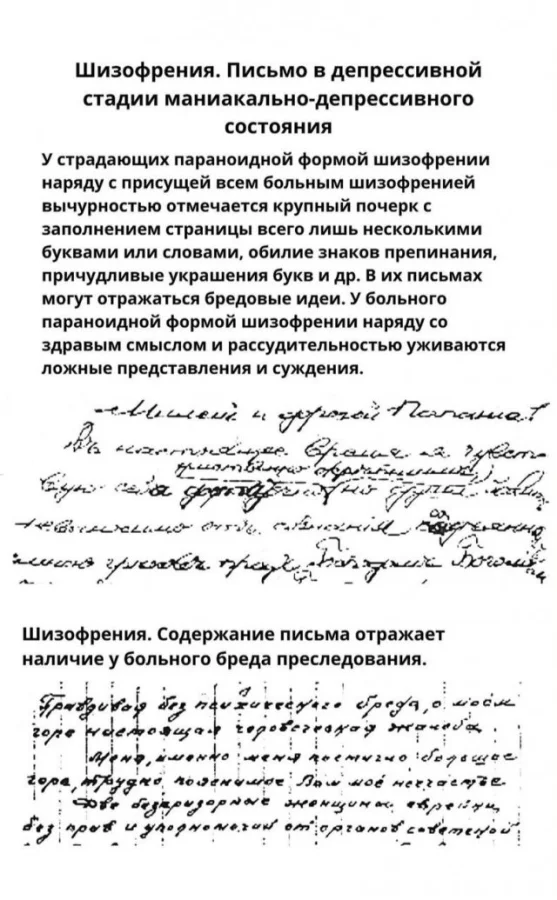 Шизофрения. Письмо в депрессивной
стадии маниакально-депрессивного
состояния
У страдающих параноидной формой шизофрении
наряду с присущей всем больным шизофренией
вычурностью отмечается крупный почерк с
заполнением страницы всего лишь несколькими
буквами или словами, обилие знаков препинания,
причудливые украшения букв и др. В их письмах
могут отражаться бредовые идеи. У больного
параноидной формой шизофрении наряду со
здравым смыслом и рассудительностью уживаются
ложные представления и суждения.
Милый и дорогой Папаша!
Въ настоящее время я чувст-
вую себя
невозможно
Шизофрения. Содержание письма отражает
наличие у больного бреда преследования.
Правдивая без психического бреда, о моём
горе настоящая человеческая жалоба.
Меня, именно меня постигло большое
горе, трудно пояснимое Вам моё несчастье.
Две безпризорные женщины еврейки,
без прав и упорномочий от органов советской